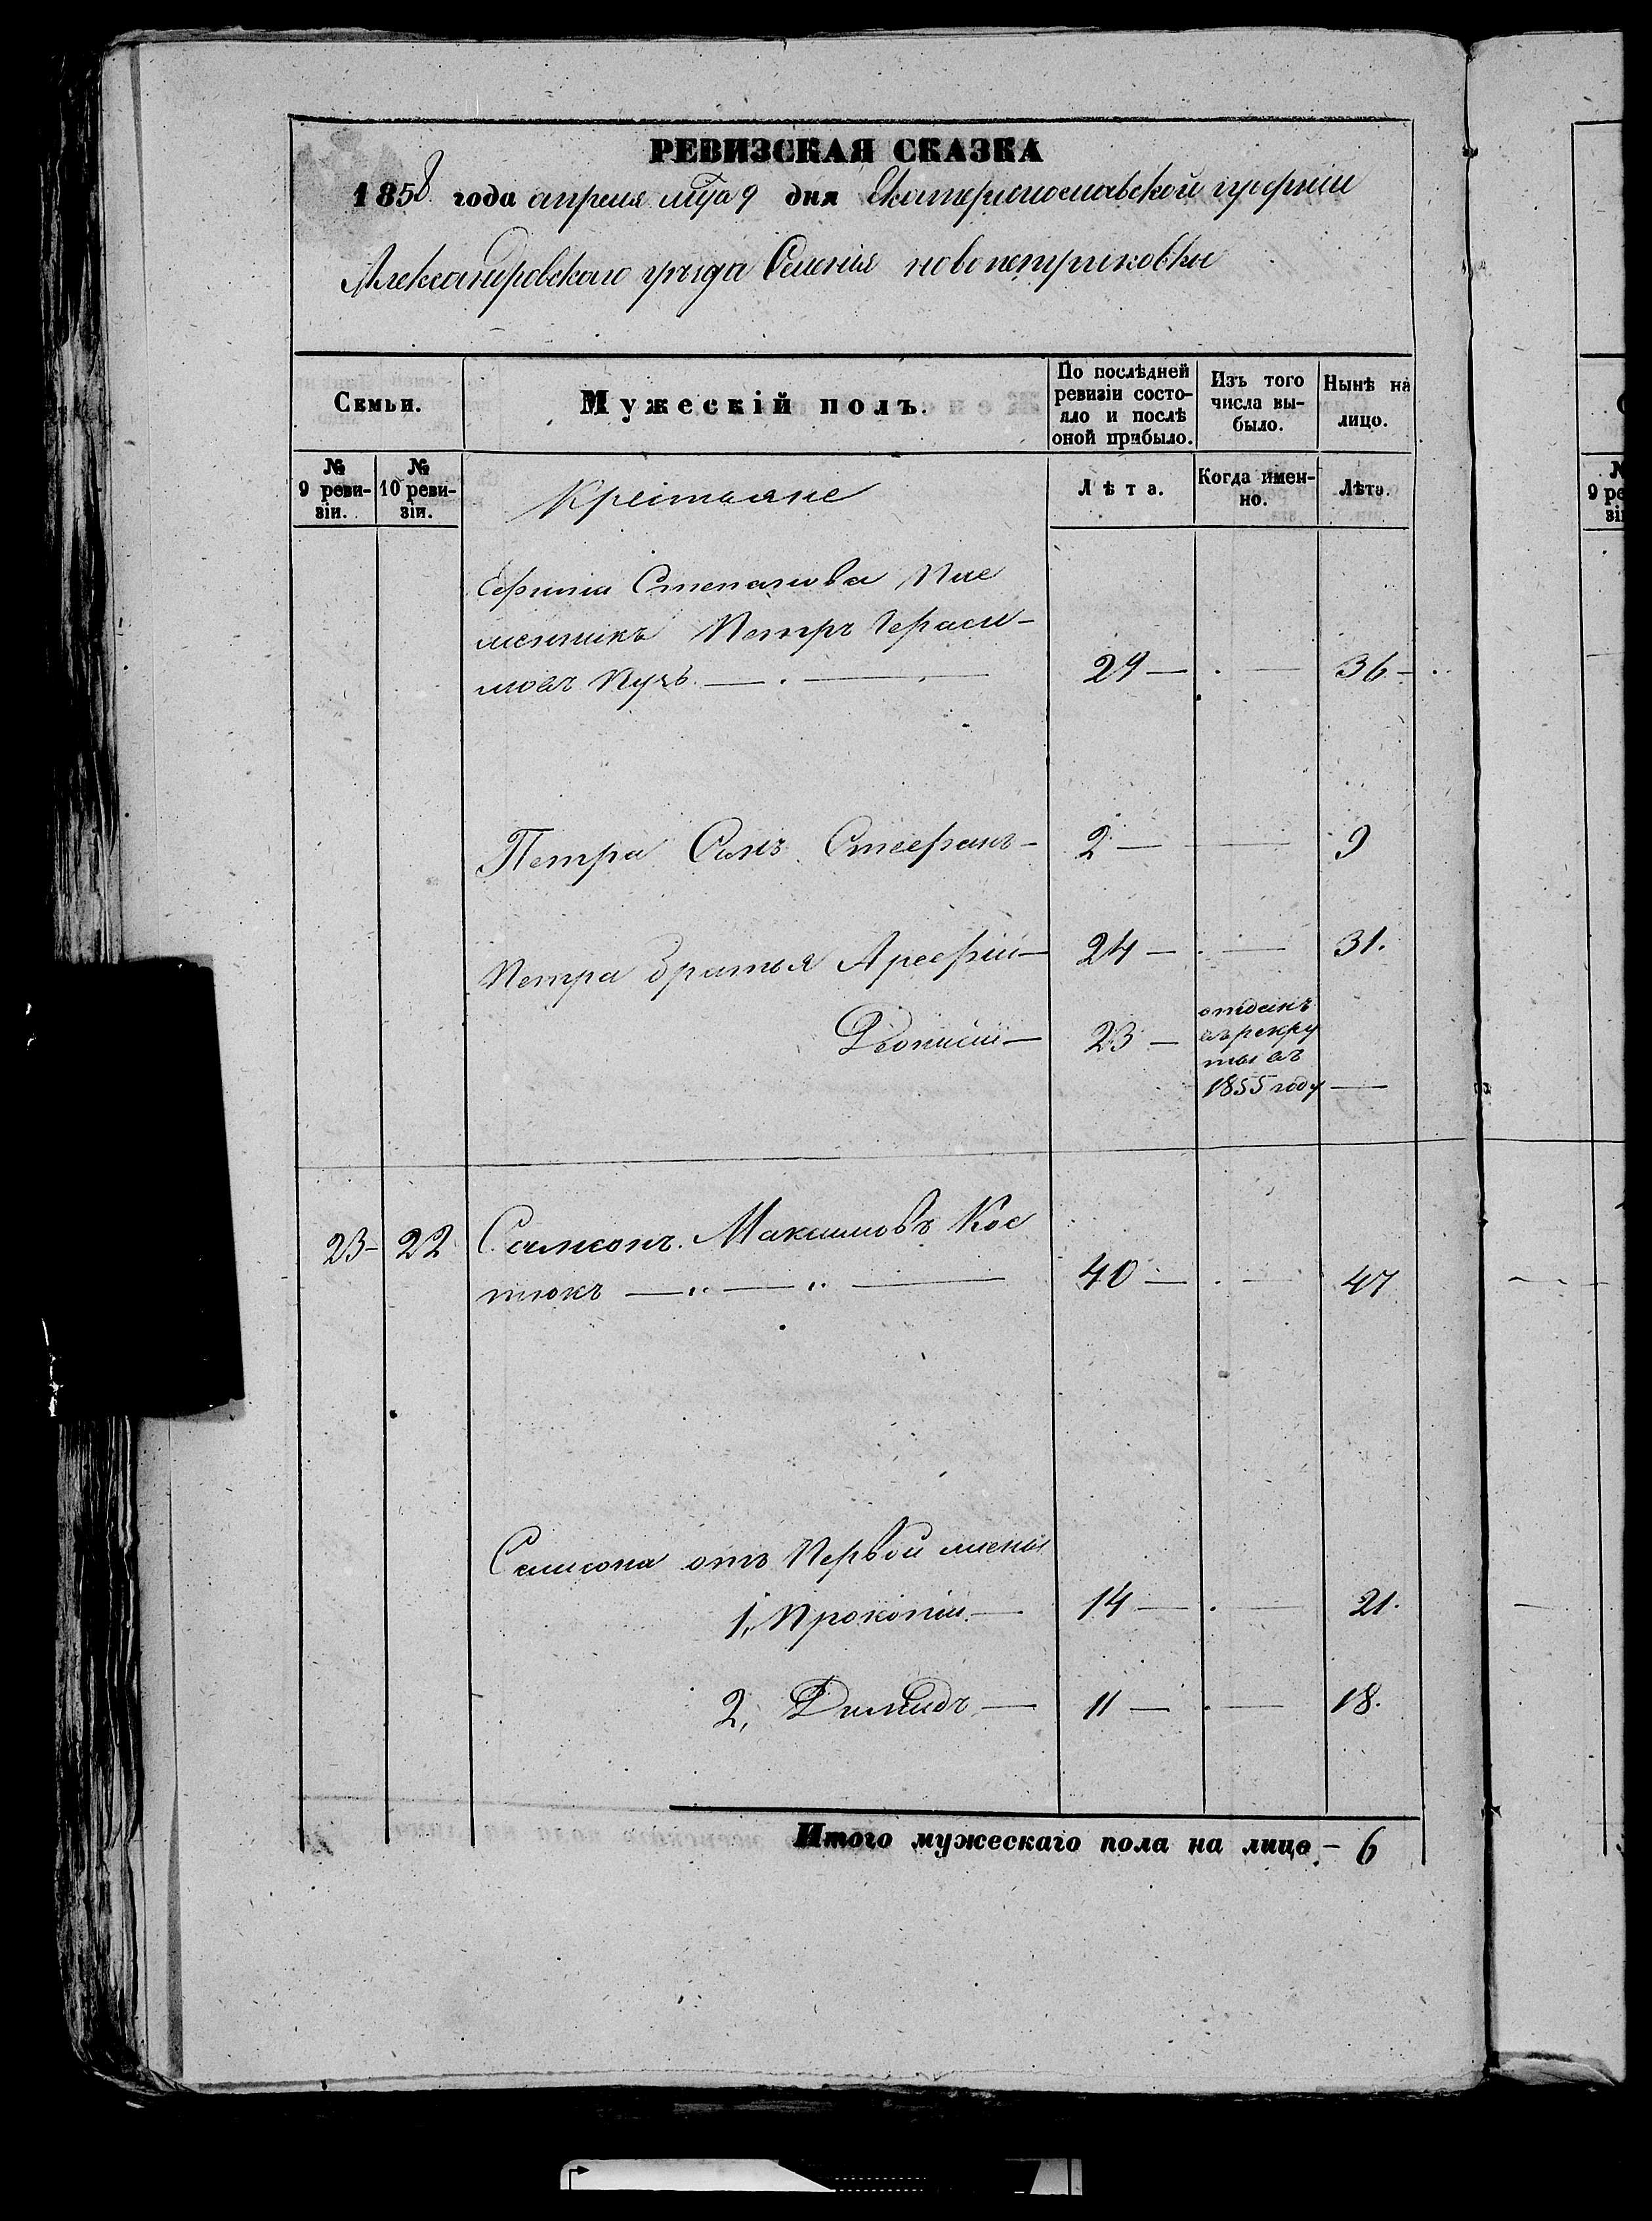 РЕВИЗСКАЯ СКАЗКА
1858 года апреля мца 9 дня Екатеринославской губернии
Александровского уезда Селенія новопетриковки
Семьи. Мужескій полъ. По послѣдней ревизіи состояло и послѣ оной прибыло. Изъ того числа выбыло. Нынѣ на лицо.
№ 9 ревизіи. № 10 ревизіи. Крестьяне Лѣта. Когда именно. Лѣта.
Степанова Пле
менникъ Петръ Гераси-
мовъ 29 — . — 36 -
Петра Сынъ Стефанъ - 2 — — 9
Петра братья Арефій — 24 — . — 31.
Деонисій — 23 — отданъ
въ рекру
ты въ
1855 году —
23- 22 Самсонъ Максимовъ Кос
тюкъ — .. — .. — 40 — . — 47
Самсона отъ Первой жены
1, Прокопій — 14 — . — 21.
2, Димидъ — 11 — . — 18.
Итого мужескаго пола на лицо - 6
9 ре